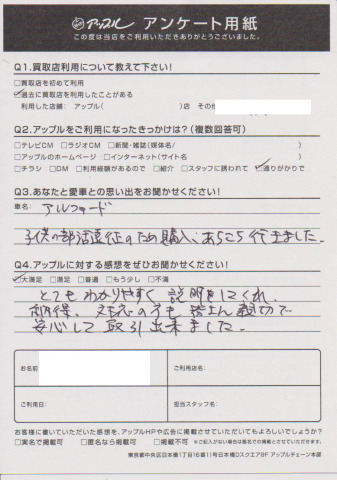 アップル アンケート用紙
この度は当店をご利用いただきありがとうございました。
Q1.買取店利用について教えて下さい!
□買取店を初めて利用
☑過去に買取店を利用したことがある
利用した店舗: アップル( )店 その他
Q2.アップルをご利用になったきっかけは?(複数回答可)
□テレビCM □ラジオCM □新聞・雑誌(媒体名/ )
□アップルのホームページ □インターネット(サイト名 )
□チラシ □DM □利用経験があるので □紹介 □スタッフに誘われて ☑通りがかりで
Q3.あなたと愛車との思い出をお聞かせください!
車名: アルファード
子供の部活遠征のため購入、あちこち行きました。
Q4.アップルに対する感想をぜひお聞かせください!
☑大満足 □満足 □普通 □もう少し □不満
とてもわかりやすく説明をしてくれ、
納得。対応の方も皆さん親切で
安心して取引出来ました。
お名前
ご利用店名:
ご利用日:
担当スタッフ名:
お客様に書いていただいた感想を、アップルHPや広告に掲載させていただいてもよろしいでしょうか?
□実名で掲載可 □匿名なら掲載可 □掲載不可 ※ご記入がない場合は匿名での掲載とさせていただきます。
東京都中央区日本橋1丁目16番11号日本橋Dスクエア8F アップルチェーン本部